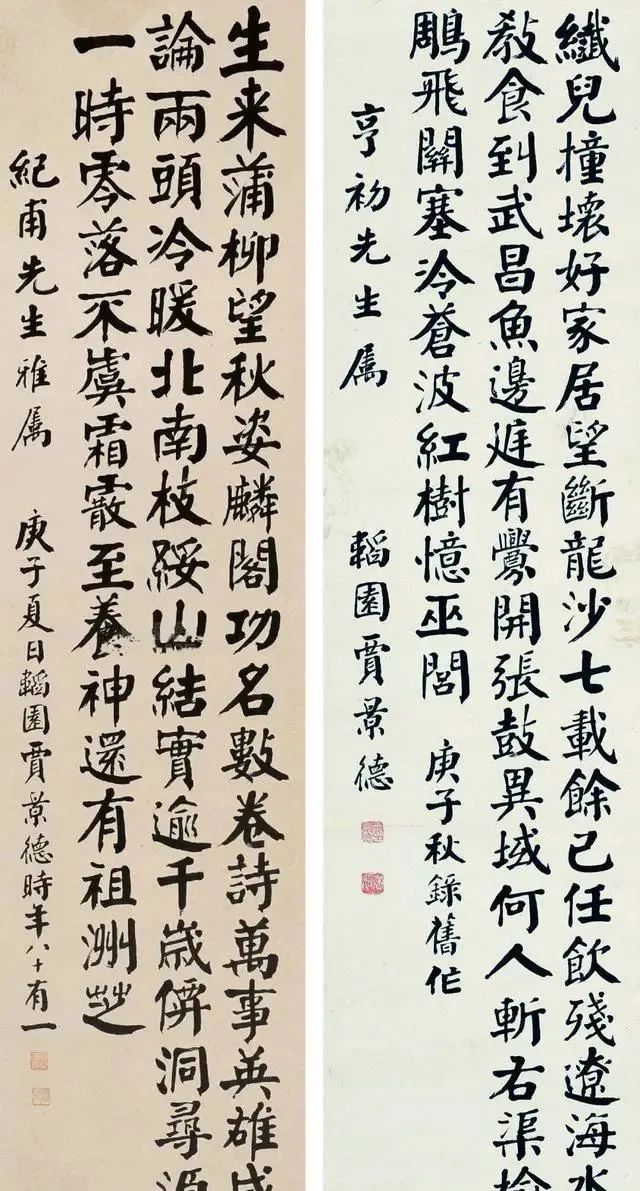 纖兒撞壞好家居望斷龍沙七載餘已任飲殘遼海水
教食到武昌魚邊廷有釁開張鼓異域何人斬右渠
鵰飛關塞冷蒼波紅樹憶巫閭
庚子秋錄舊作
亨初先生屬
韜園賈景德
生来蒲柳望秋姿麟閣功名數卷詩萬事英雄成
論兩頭冷暖北南枝綏山結實逾千歲僊洞尋源
一時零落不虞霜霰至養神還有祖洲芝
紀甫先生雅屬
庚子夏日韜園賈景德時年八十有一